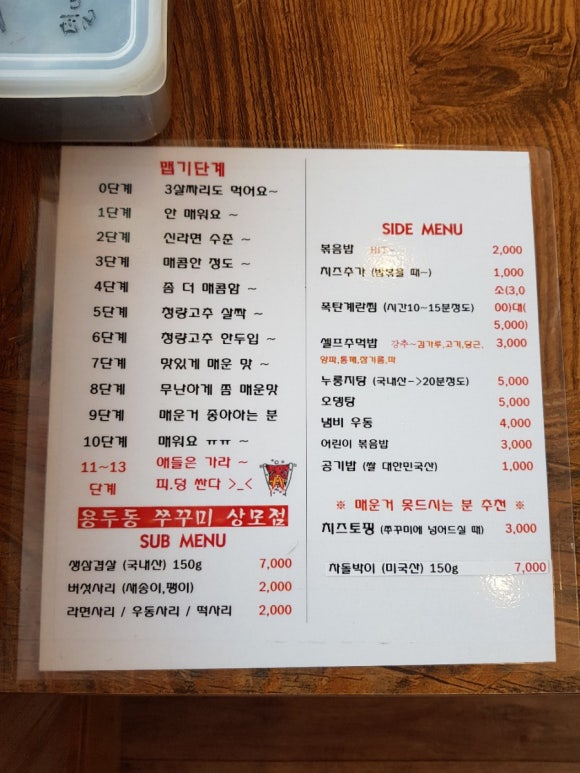 맵기단계
0단계 3살짜리도 먹어요~
1단계 안 매워요 ~
2단계 신라면 수준 ~
3단계 매콤한 정도 ~
4단계 좀 더 매콤함 ~
5단계 청량고추 살짝 ~
6단계 청량고추 한두입 ~
7단계 맛있게 매운 맛 ~
8단계 무난하게 쫌 매운맛
9단계 매운거 좋아하는 분
10단계 매워요 ㅠㅠ ~
11~13 애들은 가라 ~
단계 피.덩 싼다 >_<
용두동 쭈꾸미 상모점
SUB MENU
생삼겹살 (국내산) 150g 7,000
버섯사리 (새송이,팽이) 2,000
라면사리 / 우동사리 / 떡사리 2,000
SIDE MENU
볶음밥 2,000
치즈추가 (밥볶을 때~) 1,000
소(3,0
폭탄계란찜 (시간10~15분정도) 00)대(
5,000)
셀프주먹밥 강추~김가루,고기,당근, 3,000
양파,통깨,참기름,파
누룽지탕 (국내산->20분정도) 5,000
오뎅탕 5,000
냄비 우동 4,000
어린이 볶음밥 3,000
공기밥 (쌀 대한민국산) 1,000
※ 매운거 못드시는 분 추천 ※
치즈토핑 (쭈꾸미에 넣어드실 때) 3,000
차돌박이 (미국산) 150g 7,000